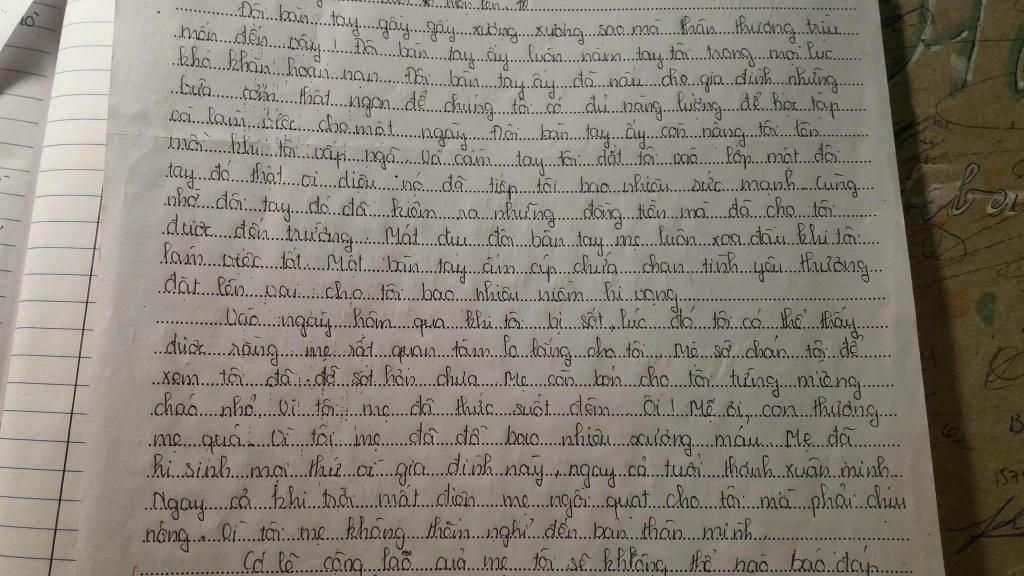 Đôi bàn tay gầy gầy xương xương sao mà thân thương trìu
mến đến vậy! Đôi bàn tay ấy luôn nắm tay tôi trong mọi lúc
khó khăn hoạn nạn. Đôi bàn tay ấy đã nấu cho gia đình những
bữa cơm thật ngon để chúng tôi có đủ năng lượng để học tập
và làm việc cho một ngày. Đôi bàn tay ấy còn nâng tôi lên
mỗi khi tôi vấp ngã. Và cầm tay tôi dắt tôi vào lớp một đôi
tay đó thật vi diệu nó đã tiếp tôi bao nhiêu sức mạnh. Cũng
nhờ đôi tay đó đã kiếm ra những đồng tiền mà đã cho tôi
được đến trường. Mát dịu đôi bàn tay mẹ luôn xoa đầu khi tôi
làm việc tốt. Một bàn tay ấm cúp chứa chan tình yêu thương
đặt lên vai cho tôi bao nhiêu niềm hi vọng.
Vào ngày hôm qua khi tôi bị sốt, lúc đó tôi có thể thấy
được rằng mẹ rất quan tâm lo lắng cho tôi. Mẹ sờ chán tôi để
xem tôi đã đỡ sốt hơn chưa. Mẹ còn bón cho tôi từng miếng
cháo nhỏ. Vì tôi mẹ đã thức suốt đêm. Ôi! Mẹ ơi, con thương
mẹ quá. Vì tôi mẹ đã đổ bao nhiêu xương máu. Mẹ đã
hi sinh mọi thứ vì gia đình này, ngay cả tuổi thánh xuân mình.
Ngay cả khi trời mất điện mẹ ngồi quạt cho tôi mà phải chịu
nóng. Vì tôi mẹ không thèm nghỉ đến bản thân mình.
Có lẽ công lao của mẹ tôi sẽ không thể nào báo đáp